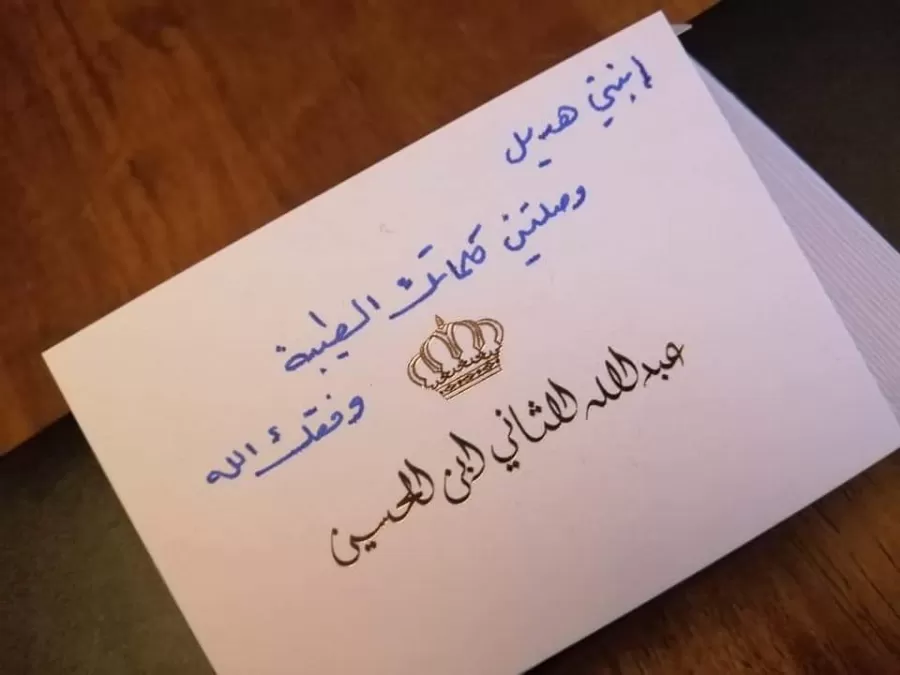 ابنتي هديل
وصلتني كلماتك الطيبة
وفقك الله
عبدالله الثاني ابن الحسين